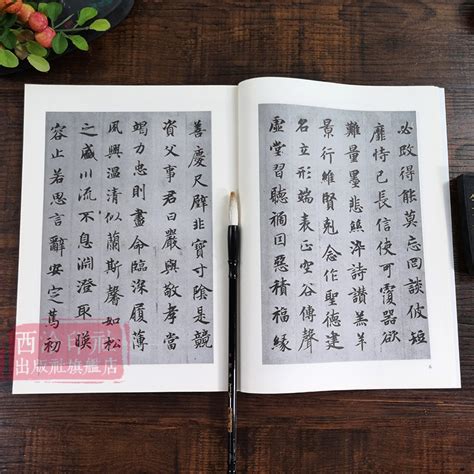 必改得能莫忘罔談彼短
靡恃己長信使可覆器欲
難量墨悲絲染詩讚羔羊
景行維賢剋念作聖德建
名立形端表正空谷傳聲
虛堂習聽禍因惡積福緣
善慶尺璧非寶寸陰是競
資父事君曰嚴與敬孝當
竭力忠則盡命臨深履薄
夙興溫清似蘭斯馨如松
之盛川流不息淵澄取暎
容止若思言辭安定篤初
西泠印社
出版社旗艦店